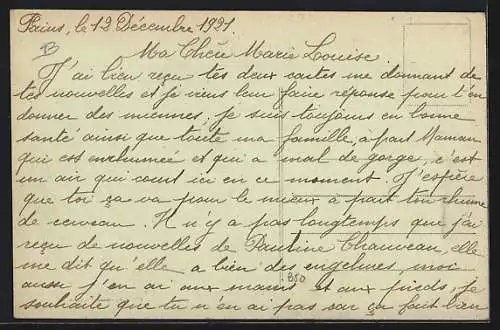 Pains, le 12 Décembre 1921.
B
Ma Chère Marie Louise.
J'ai bien reçu tes deux cartes me donnant de
tes nouvelles et je viens leur faire réponse pour t'en
donner des miennes; je suis toujours en bonne
santé ainsi que toute ma famille, à part Maman
qui est enrhumée et qui a mal de gorge, c'est
un air qui court ici en ce moment. J'espère
que toi ça va pour le mieux à part ton rhume
de cerveau. Il n'y a pas longtemps que j'ai
reçu de nouvelles de Pauline Chauveau, elle
me dit qu'elle a bien des engelures, moi
aussi j'en ai aux mains et aux pieds, je
souhaite que tu n'en ai pas car ça fait bien
B50